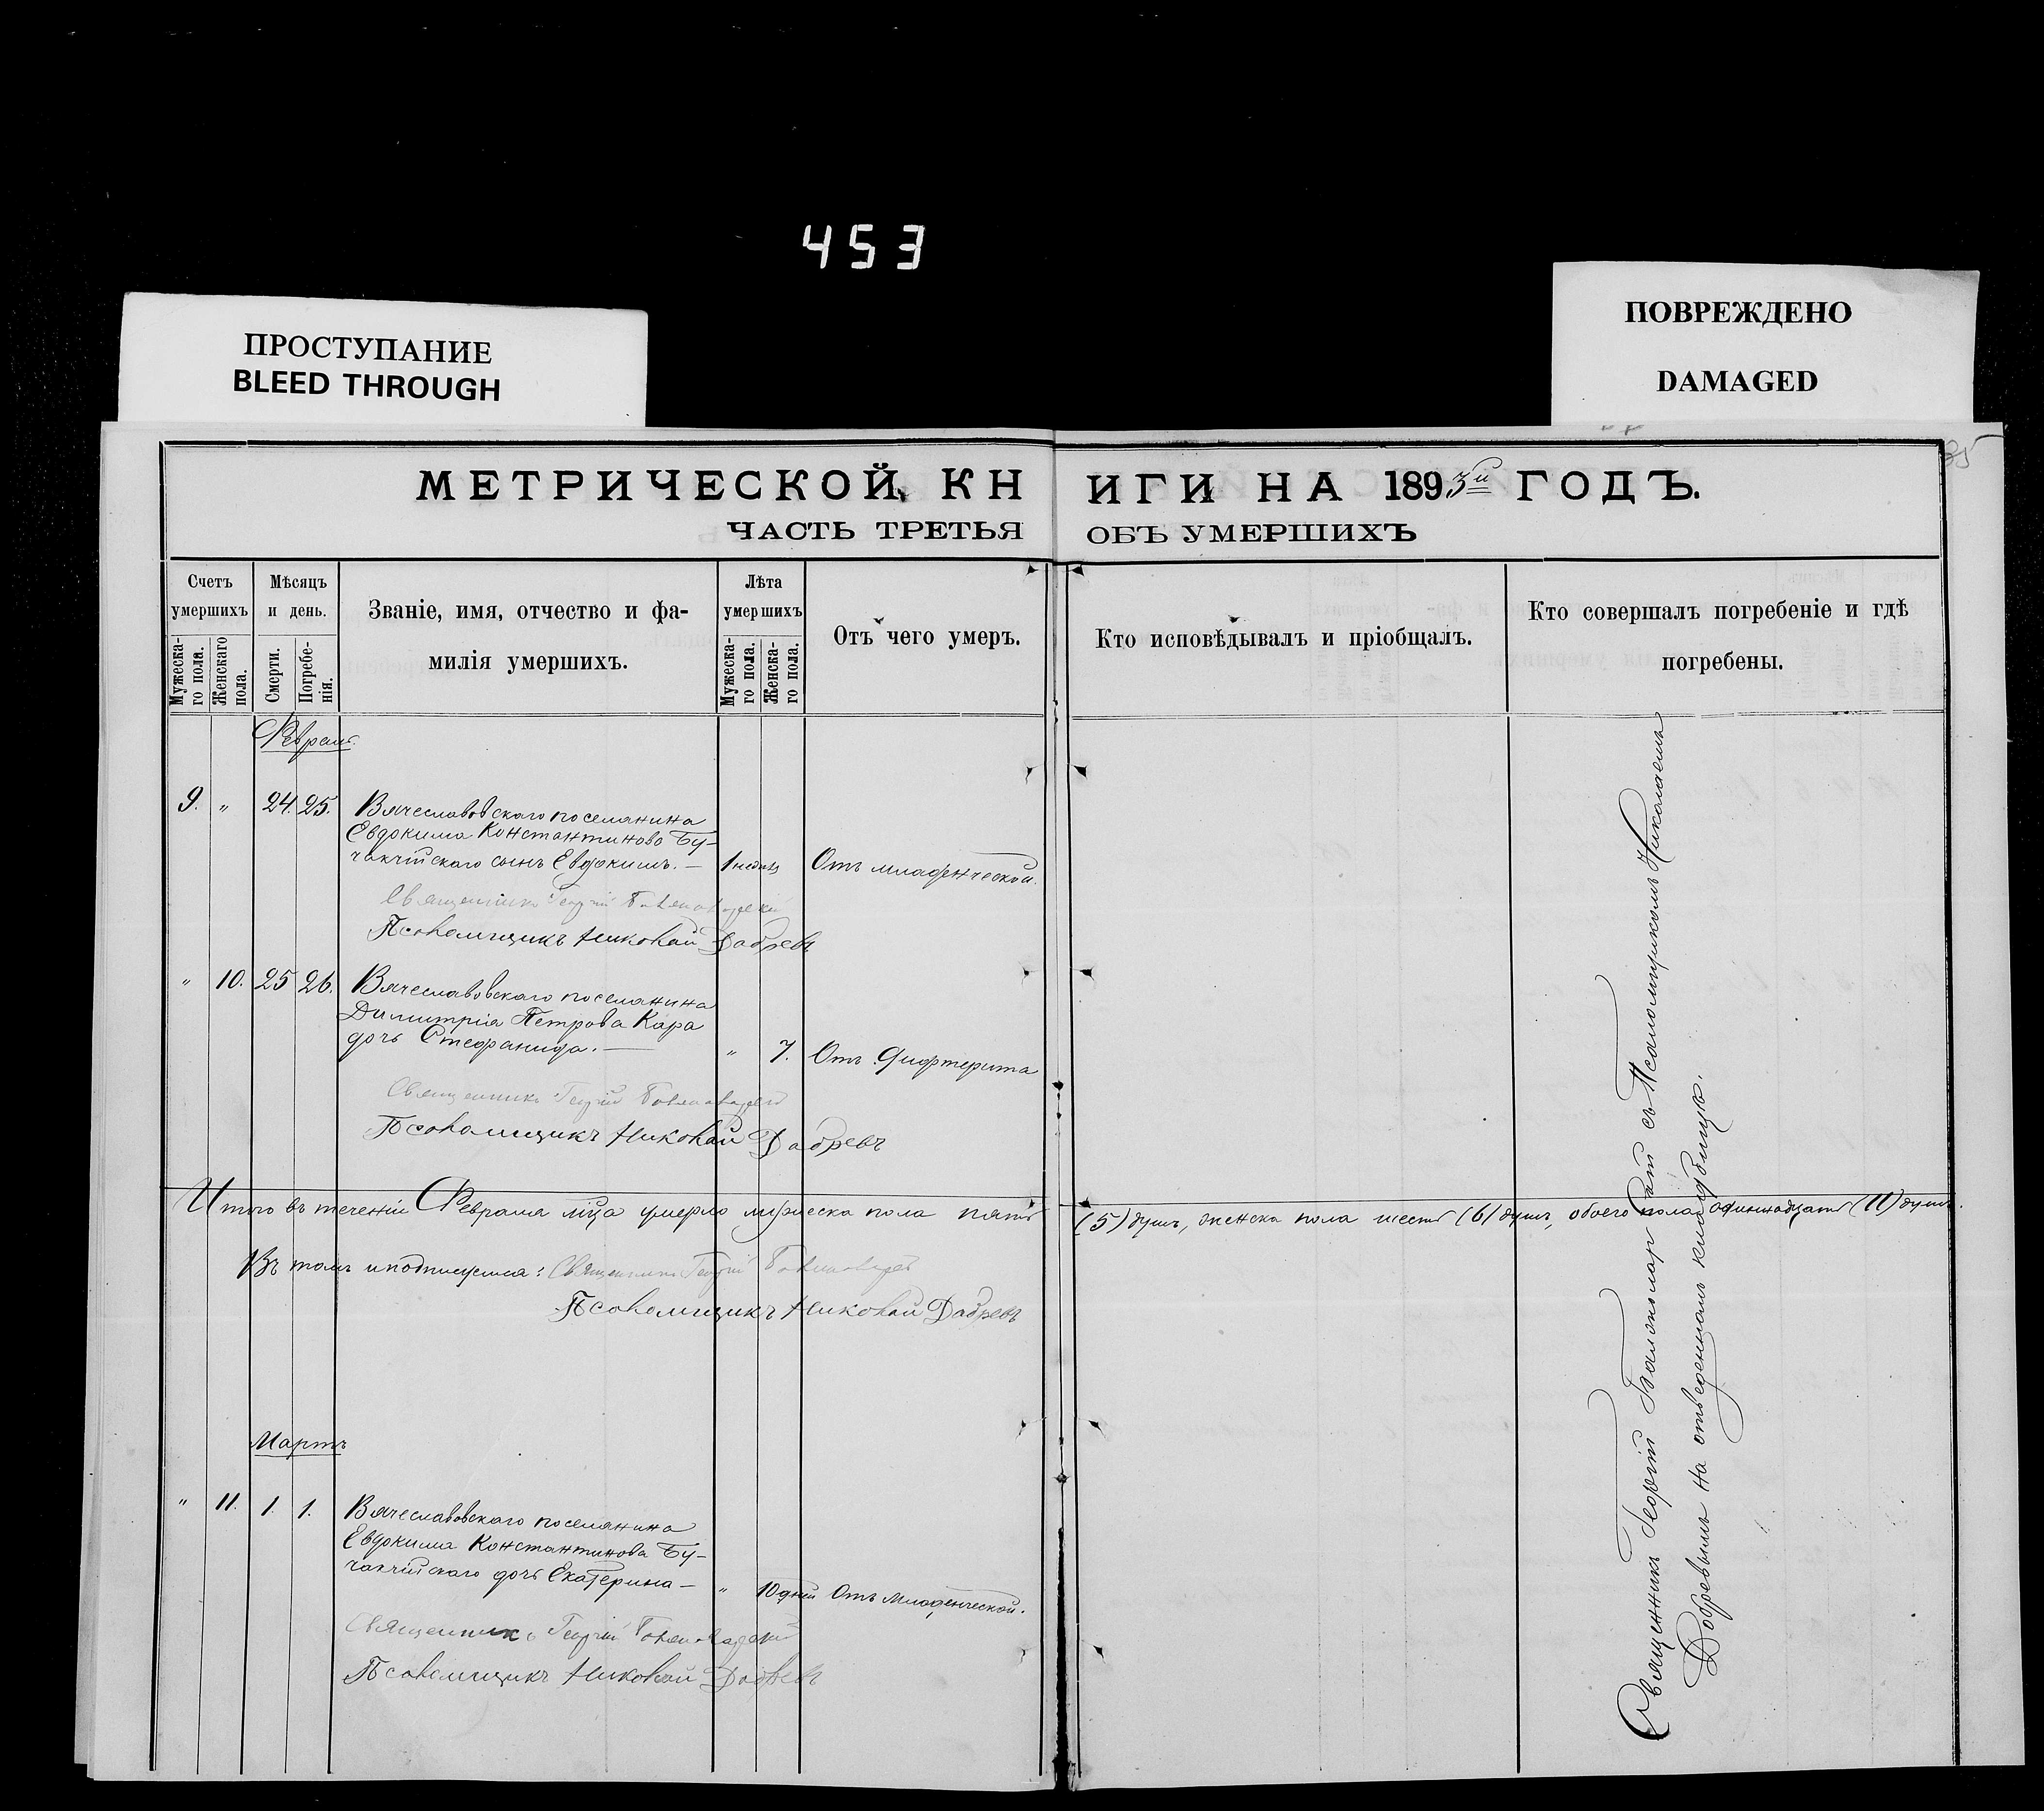 453
ПРОСТУПАНИЕ
BLEED THROUGH
ПОВРЕЖДЕНО
DAMAGED
МЕТРИЧЕСКОЙ КНИГИ НА 1893й ГОДЪ.
ЧАСТЬ ТРЕТЬЯ ОБЪ УМЕРШИХЪ
Счетъ умершихъ
Мужеска-го пола.
Женскаго пола.
Мѣсяцъ и день.
Смерти.
Погребе-нія.
Званіе, имя, отчество и фа-
милія умершихъ.
Лѣта умершихъ
Мужеска-го пола.
Женска-го пола.
Отъ чего умеръ.
Кто исповѣдывалъ и пріобщалъ.
Кто совершалъ погребеніе и гдѣ
погребены.
Февраль
9. " 24. 25. Вячеславовскаго поселянина
Евдокима Константиново Бу-
чакчійскаго сынъ Евдокимъ. —
Отъ младенческой.
Священникъ Георгій
Псаломщикъ Николай Добревъ
" 10. 25 26. Вячеславовскаго поселянина
Димитрія Петрова Кара
дочь Стефанида. — " 7. Отъ дифтерита
Священникъ Георгій
Псаломщикъ Николай Добревъ
Итого въ теченіи Февраля мца умерло мужеска пола пять (5) душъ, женска пола шесть (6) душъ, обоего пола одиннадцать (11) душъ.
Въ томъ и подписуемся: Священникъ Георгій
Псаломщикъ Николай Добревъ
Мартъ
" 11. 1. 1. Вячеславовскаго поселянина
Евдокима Константинова Бу-
чакчійскаго дочь Екатерина — " 10 дней Отъ младенческой.
Священникъ Георгій
Псаломщикъ Николай Добревъ
Священникъ Георгій съ Псаломщикомъ Николаемъ
Добревымъ на отведенномъ кладбищѣ.